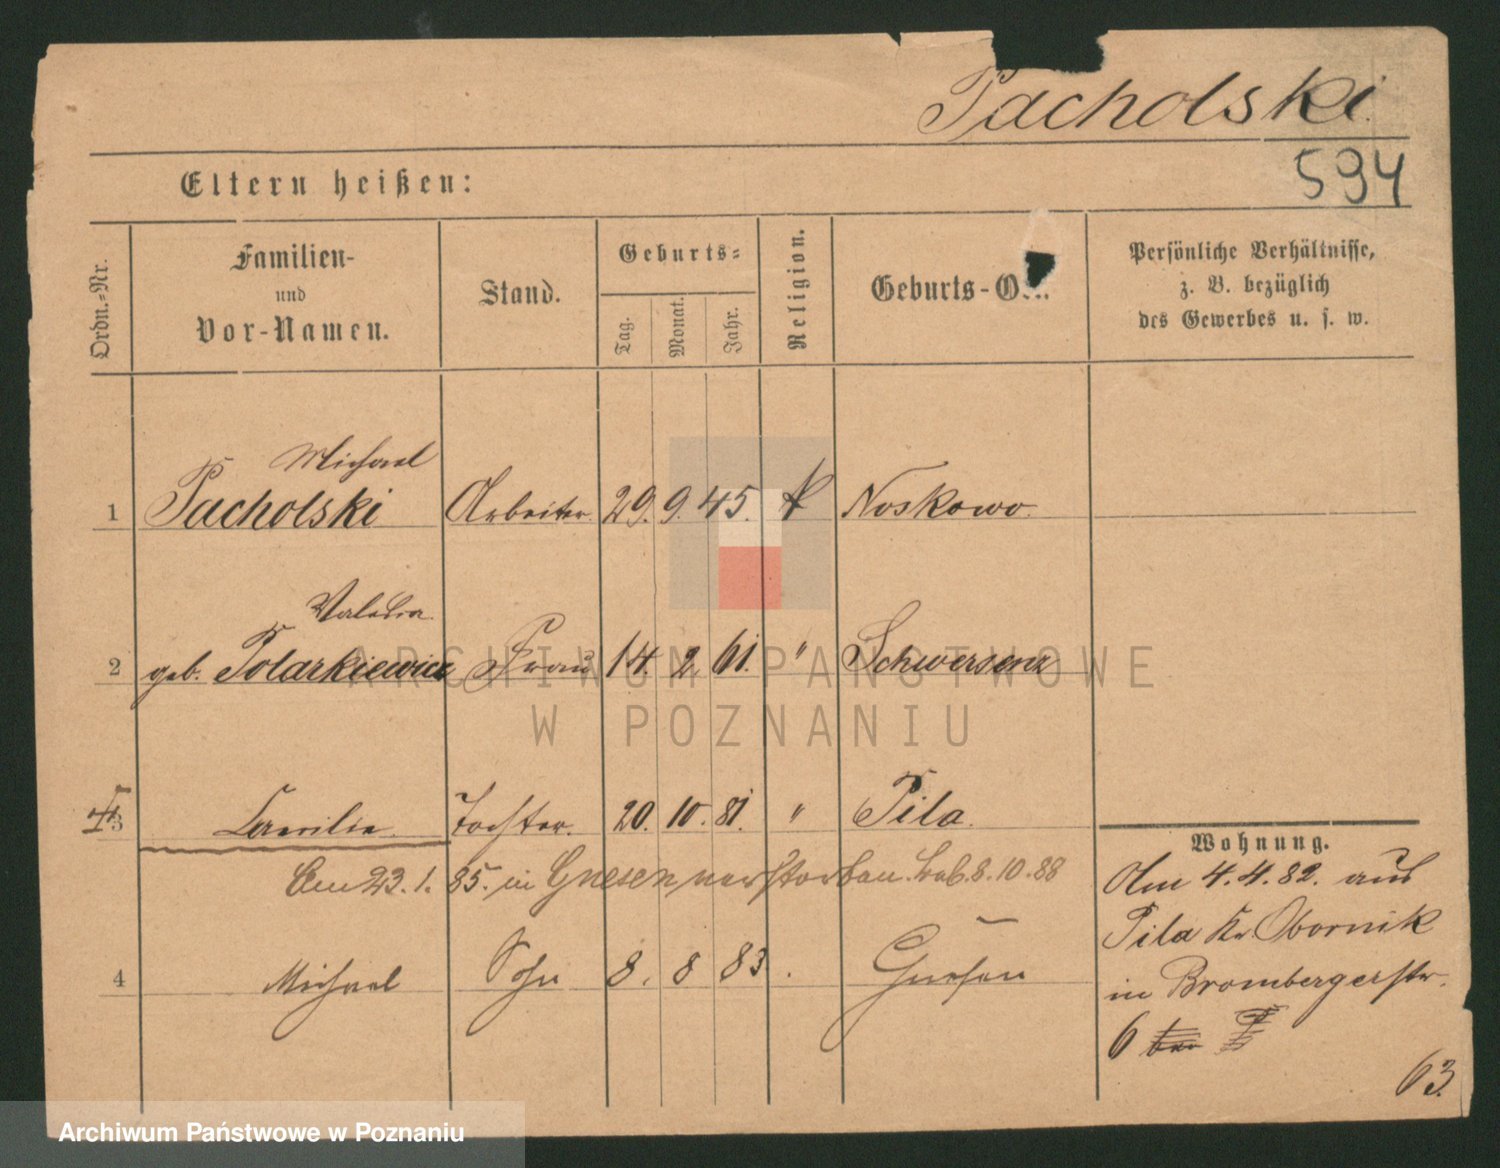 Pacholski
594
Eltern heißen:
Ordn.=Nr.
Familien-
und
Vor-Namen.
Stand.
Geburts=
Tag.
Monat.
Jahr.
Religion.
Geburts-O
Persönliche Verhältnisse,
z. B. bezüglich
des Gewerbes u. s. w.
Michael
1 Pacholski Arbeiter 29. 9. 45. k Noskowo
Valeria
2 geb. Polarkiewicz Frau 14. 2. 61. " Schwersenz
3 Tochter. 20. 10. 81. " Pila
Am 23. 1. 85. in Gnesen verstorben. 8.10.88
4 Michael Sohn 8. 8 83. Gnesen
Wohnung.
Am 4.4.82. aus
Pila Kr. Obornik
in Brombergerstr.
6
63.
ARCHIWUM PAŃSTWOWE
W POZNANIU
Archiwum Państwowe w Poznaniu